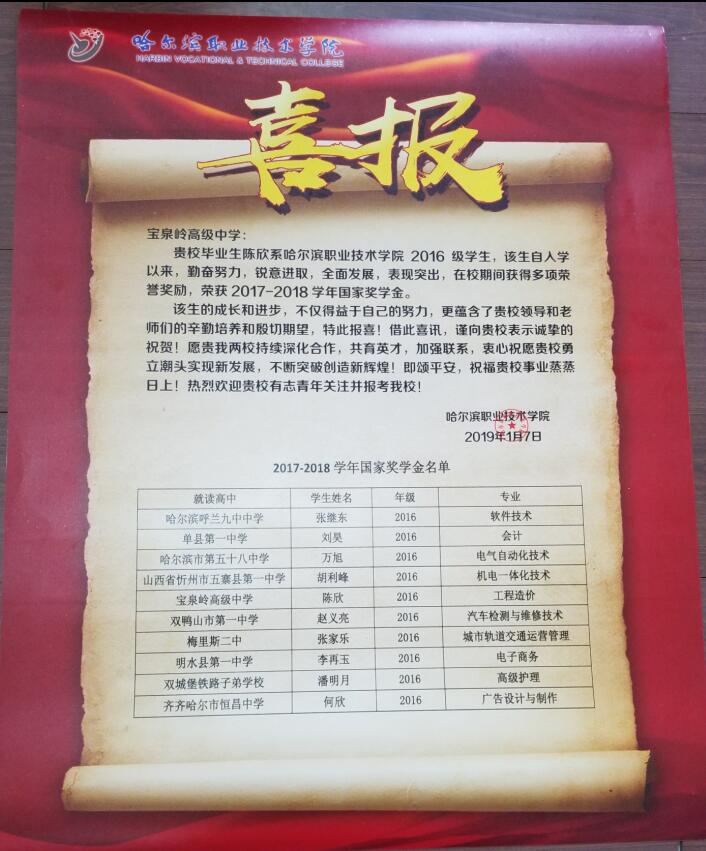 哈尔滨职业技术学院
HARBIN VOCATIONAL & TECHNICAL COLLEGE
喜报
宝泉岭高级中学：
贵校毕业生陈欣系哈尔滨职业技术学院 2016 级学生，该生自入学
以来，勤奋努力，锐意进取，全面发展，表现突出，在校期间获得多项荣
誉奖励，荣获 2017-2018 学年国家奖学金。
该生的成长和进步，不仅得益于自己的努力，更蕴含了贵校领导和老
师们的辛勤培养和殷切期望，特此报喜！借此喜讯，谨向贵校表示诚挚的
祝贺！愿贵我两校持续深化合作，共育英才，加强联系，衷心祝愿贵校勇
立潮头实现新发展，不断突破创造新辉煌！即颂平安，祝福贵校事业蒸蒸
日上！热烈欢迎贵校有志青年关注并报考我校！
哈尔滨职业技术学院
2019年1月7日
2017-2018 学年国家奖学金名单
就读高中 学生姓名 年级 专业
哈尔滨呼兰九中中学 张继东 2016 软件技术
单县第一中学 刘昊 2016 会计
哈尔滨市第五十八中学 万旭 2016 电气自动化技术
山西省忻州市五寨县第一中学 胡利峰 2016 机电一体化技术
宝泉岭高级中学 陈欣 2016 工程造价
双鸭山市第一中学 赵义亮 2016 汽车检测与维修技术
梅里斯二中 张家乐 2016 城市轨道交通运营管理
明水县第一中学 李再玉 2016 电子商务
双城堡铁路子弟学校 潘明月 2016 高级护理
齐齐哈尔市恒昌中学 何欣 2016 广告设计与制作